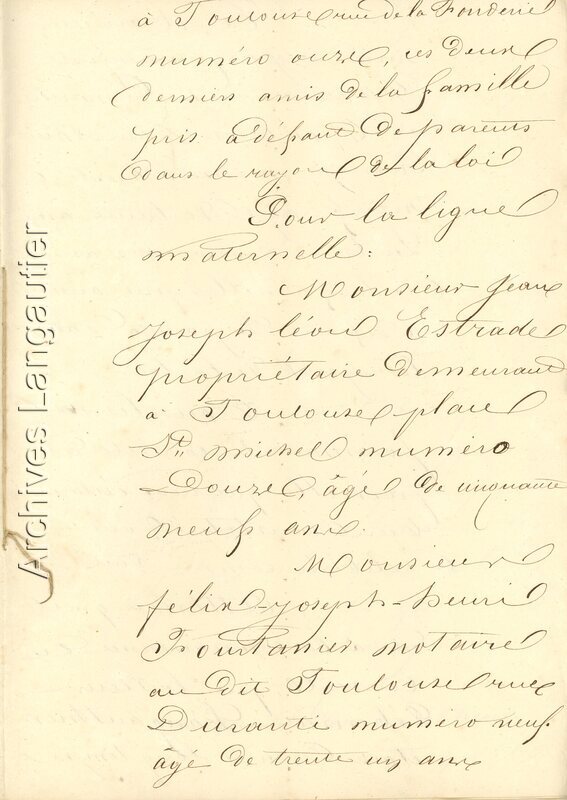 à Toulouse rue de la Fonderie
numéro onze, ces deux
derniers amis de la famille
pris à défaut de parents
dans le rayon de la loi
Pour la ligne
maternelle :
Monsieur Jean
Joseph léon Estrade
propriétaire demeurant
à Toulouse place
St michel numéro
Douze, âgé de cinquante
neuf ans.
Monsieur
félix-joseph-henri
Fourtanier notaire
au dit Toulouse rue
Duranti numéro neuf
âgé de trente un ans
Archives Langautier